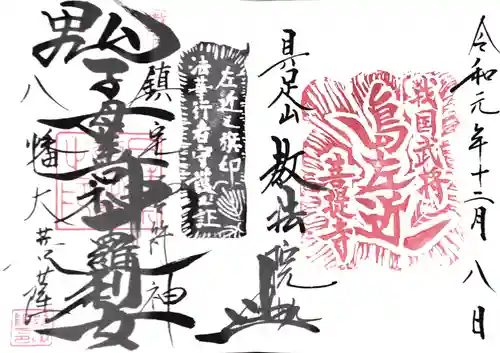 令和元年十二月八日
戦国武将
島左近
菩提寺
具足山
教法院
左近之旗印
法華行者守護之証
鎮宅
神
鬼子母善神
十羅刹女
八幡大菩薩